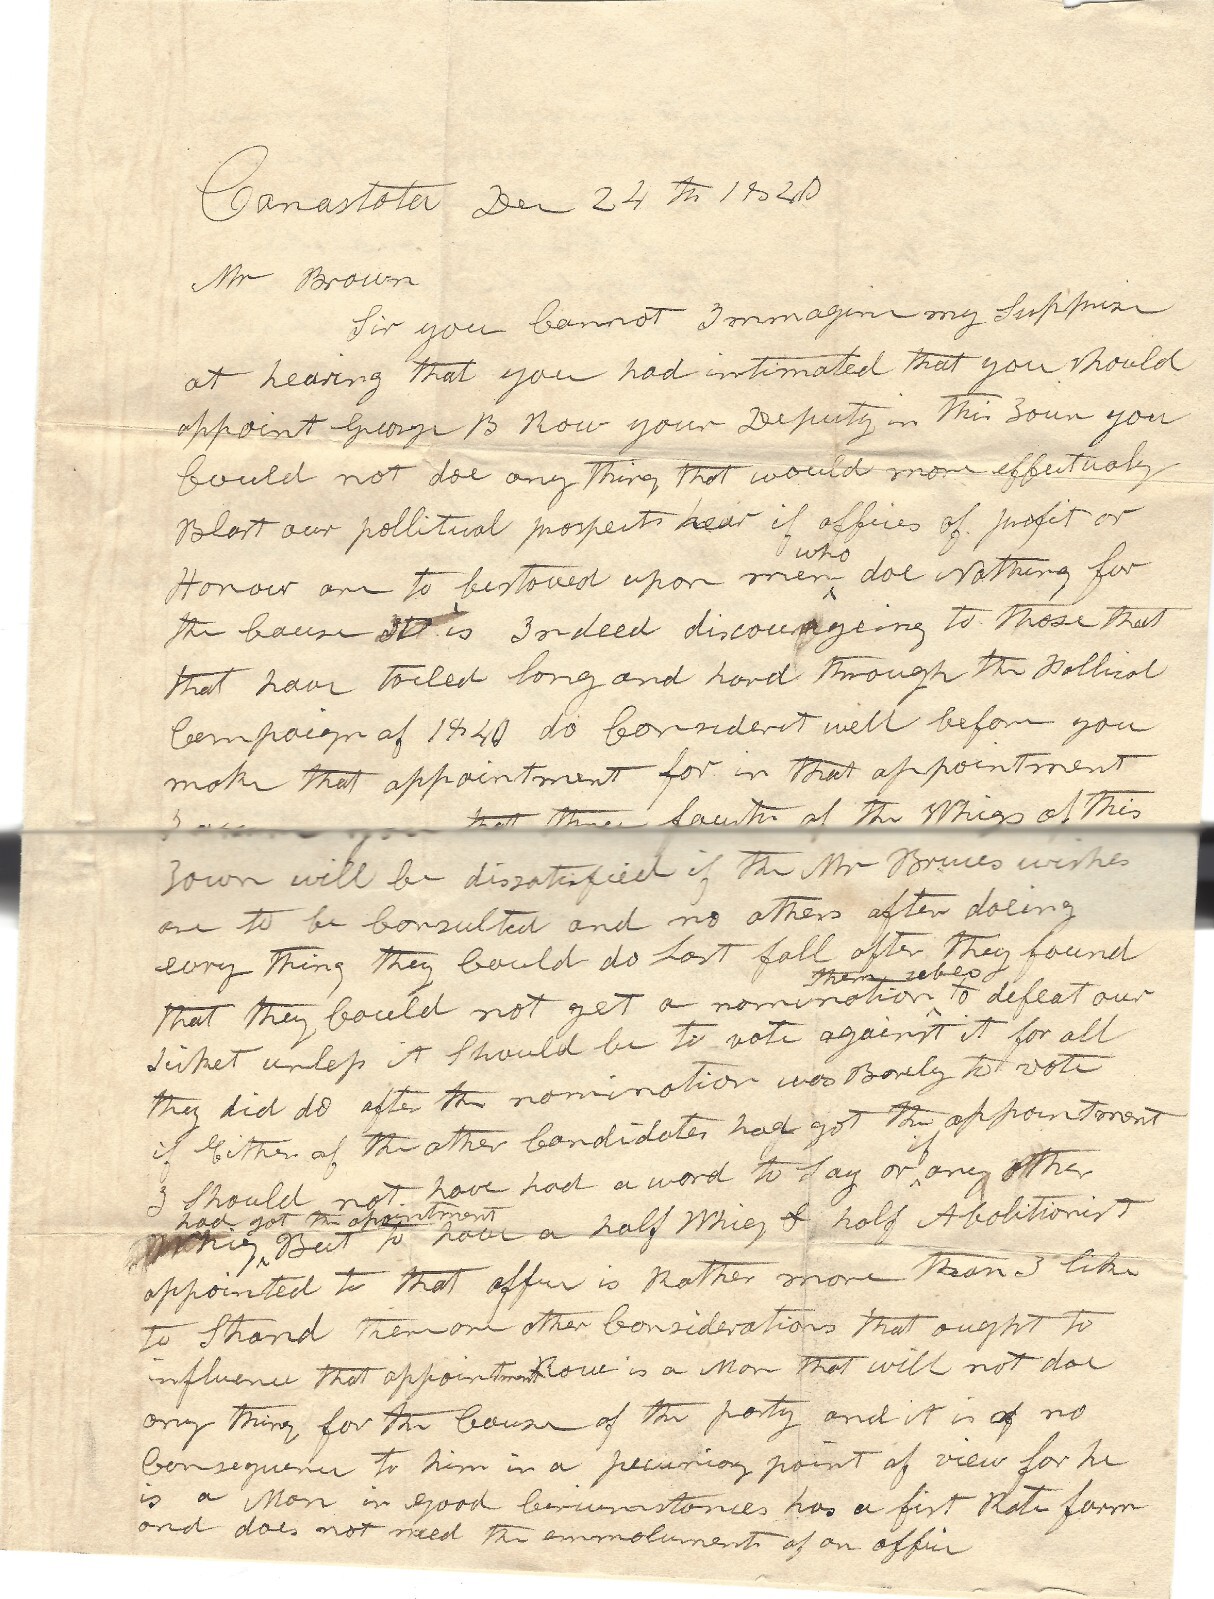 Canastota Dec 24th 1840
Mr Brown
Sir you Cannot Immagine my Supprise
at hearing that you had intimated that you should
appoint George B Rowe your Deputy in this Town you
Could not doe any thing that would more effectualy
Blast our pollitical prospects hear if offices of profit or
who
Honour are to bestowed upon men ^ doe Nothing for
the Cause It is Indeed discourageing to those that
that have toiled long and hard through the Pollical
Campaign of 1840 do Consider it well before you
make that appointment for in that appointment
I you that three fourths of the Whigs of this
Town will be dissatisfied if the Mr Bruces wishes
are to be Consulted and no others after doeing
evry thing they Could do Last fall after they found
them selves
that they Could not get a nomination ^ to defeat our
Ticket unless it Should be to vote against it for all
they did do after the nomination was Barely to vote
if Either of the other Candidates had got the appointment
if
I Should not have had a word to Say or ^ any other
had got the apointment
Whig ^ But to have a half Whig & half Abolitionist
appointed to that office is Rather more than I like
to Stand there are other Considerations that ought to
influence that appointment Rowe is a Man that will not doe
any thing for the Cause of the party and it is of no
Consequence to him in a pecuniary point of view for he
is a Man in good Circumstances has a first Rate farm
and does not need the emmoluments of an office